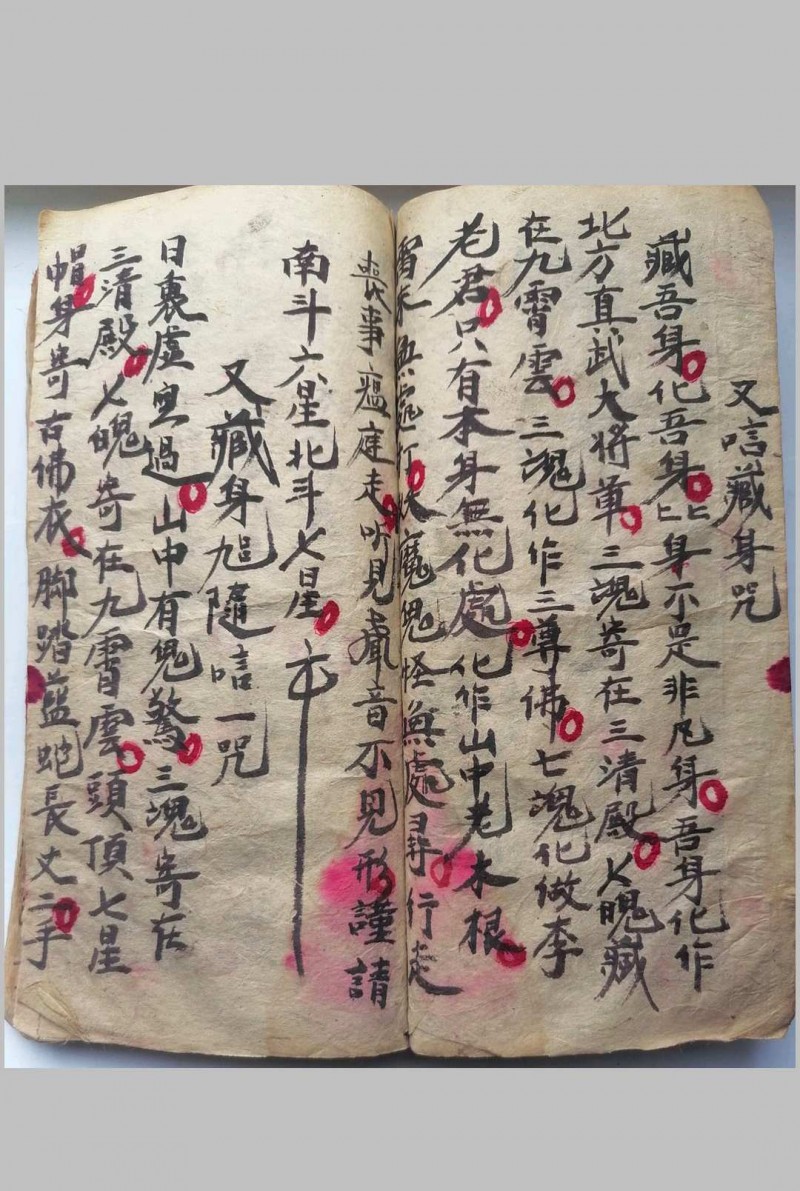 又唁藏身咒
藏吾身化吾身匕匕身不是非凡身吾身化作
北方真武大将軍三魂寄在三清殿七魄藏
在九霄雲三魂化作三尊佛七魂化做李
老君只有本身無化處化作山中老木根
魔鬼怪無處尋行走
喪事瘟瘟走听見聲音不見形謹請
南斗六星北斗七星
又藏身旭隨唁一咒
日裏虛空過山中有鬼驚三魂寄在
三清殿七魄寄在九霄雲頭頂七星
帽身寄古佛衣脚踏藍蛇長丈二手